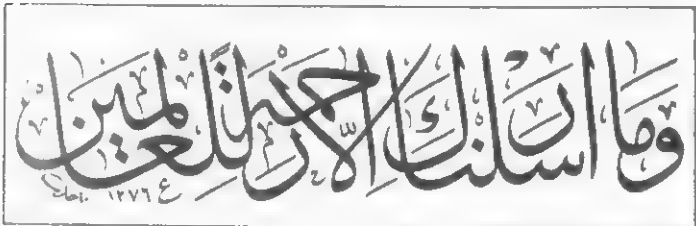 وَمَا أَرْسَلْنَاكَ إِلَّا رَحْمَةً لِلْعَالَمِينَ
ع ١٢٧٦